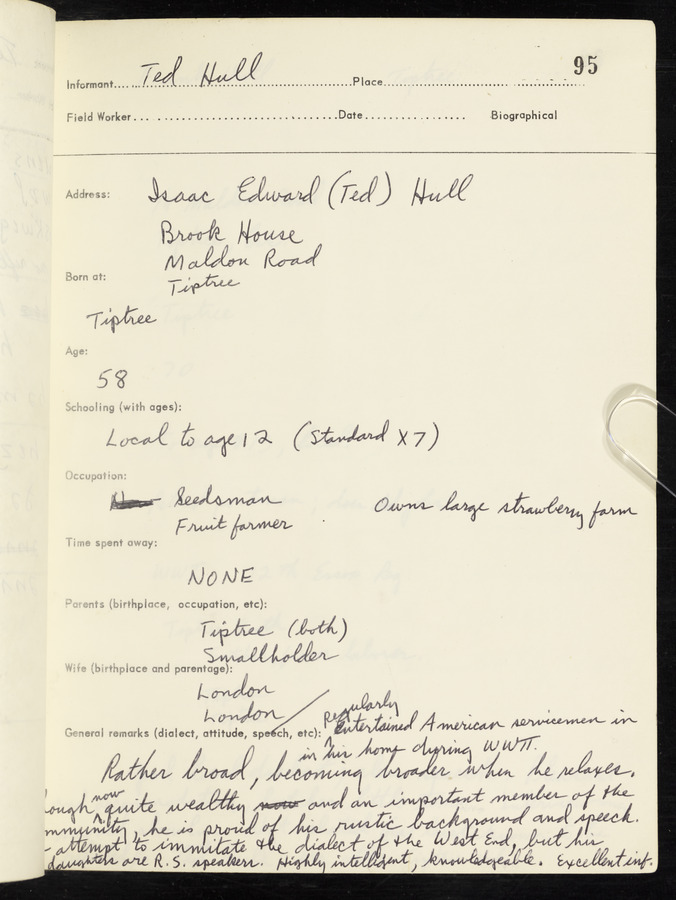 95
Informant.... Ted Hull ....Place....
Field Worker... ....Date.... Biographical
Address: Isaac Edward (Ted) Hull
Brook House
Maldon Road
Born at: Tiptree
Tiptree
Age:
58
Schooling (with ages):
Local to age 12 (Standard X7)
Occupation:
Seedsman Owns large strawberry farm
Fruit farmer
Time spent away:
NONE
Parents (birthplace, occupation, etc):
Tiptree (both)
Smallholder
Wife (birthplace and parentage):
London
London
General remarks (dialect, attitude, speech, etc): Regularly entertained American servicemen in
in his home during WWII.
Rather broad, becoming broader when he relaxes.
ough now quite wealthy now and an important member of the
mmunity, he is proud of his rustic background and speech.
attempt to immitate the dialect of the West End, but his
daughters are R.S. speakers. Highly intelligent, knowledgeable. Excellent inf.